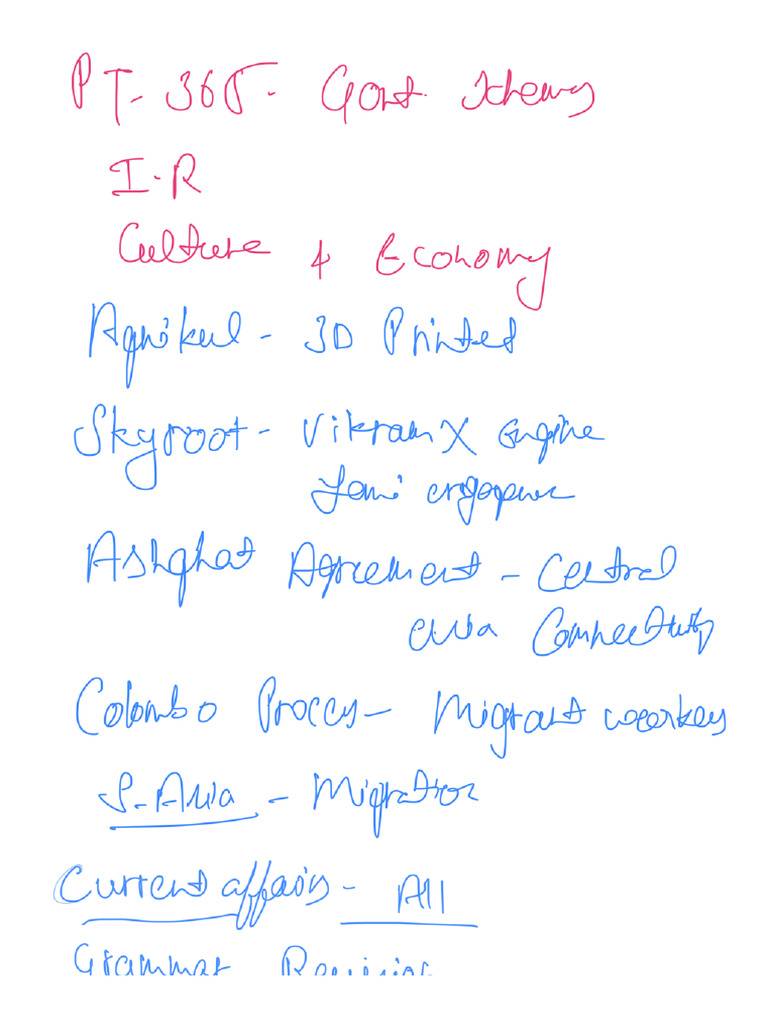 PT-365- Govt. Schemes
I.R
Culture & Economy
Agnikul - 3D Printed
Skyroot - Vikram X Engine
Semi
Ashgbat Agreement - Central
Asia Connectivity
Colombo Process - Migrant workers
S-Asia - Migration
Current affairs - All
Grammar Revision